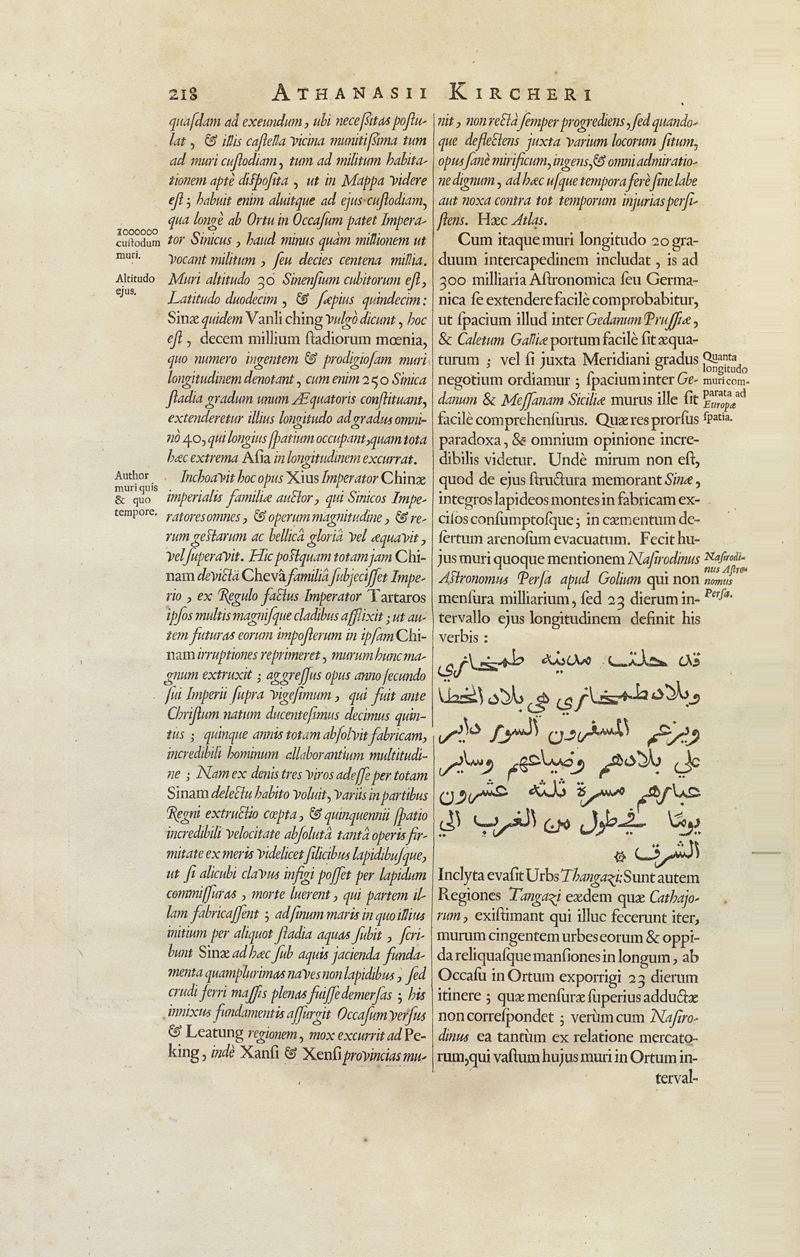 218 ATHANASII KIRCHERI
quaſdam ad exeundum, ubi neceſſitas poſtu-
lat, & illis caſtella vicina munitiſſima tum
ad muri cuſtodiam, tum ad militum habita-
tionem aptè diſpoſita, ut in Mappa videre
eſt; habuit enim aluitque ad ejus cuſtodiam,
qua longè ab Ortu in Occaſum patet Impera-
tor Sinicus, haud minus quàm millionem ut
vocant militum, ſeu decies centena millia.
Muri altitudo 30 Sinenſium cubitorum eſt,
Latitudo duodecim, & ſæpius quindecim:
Sinæ quidem Vanli ching vulgò dicunt, hoc
eſt, decem millium ſtadiorum mœnia,
quo numero ingentem & prodigioſam muri
longitudinem denotant, cum enim 250 Sinica
ſtadia gradum unum Æquatoris conſtituant,
extenderetur illius longitudo ad gradus omni-
nò 40, qui longius ſpatium occupant, quam tota
hæc extrema Aſia in longitudinem excurrat.
Inchoavit hoc opus Xius Imperator Chinæ
imperialis familiæ auctor, qui Sinicos Impe-
ratores omnes, & operum magnitudine, & re-
rum geſtarum ac bellicâ gloriâ vel æquavit,
vel ſuperavit. Hic poſtquam totam jam Chi-
nam devictâ Chevâ familiâ ſubjeciſſet Impe-
rio, ex Regulo factus Imperator Tartaros
ipſos multis magniſque cladibus afflixit; ut au-
tem futuras eorum impoſterum in ipſam Chi-
nam irruptiones reprimeret, murum hunc ma-
gnum extruxit; aggreſſus opus anno ſecundo
ſui Imperii ſupra vigeſimum, qui fuit ante
Chriſtum natum ducenteſimus decimus quin-
tus; quinque annis totam abſolvit fabricam,
incredibili hominum allaborantium multitudi-
ne; Nam ex denis tres viros adeſſe per totam
Sinam delectu habito voluit, variis in partibus
Regni extructio cœpta, & quinquennii ſpatio
incredibili velocitate abſoluta tantâ operis fir-
mitate ex meris videlicet ſilicibus lapidibuſque,
ut ſi alicubi clavus infigi poſſet per lapidum
commiſſuras, morte luerent, qui partem il-
lam fabricaſſent; ad ſinum maris in quo illius
initium per aliquot ſtadia aquas ſubit, ſcri-
bunt Sinæ ad hæc ſub aquis jacienda funda-
menta quamplurimas naves non lapidibus, ſed
crudi ferri maſſis plenas fuiſſe demerſas; his
innixus fundamentis aſſurgit Occaſum verſus
& Leatung regionem, mox excurrit ad Pe-
king, indè Xanſi & Xenſi provincias mu-
1000000
cuſtodum
muri.
Altitudo
ejus.
Author
muri quis
& quo
tempore.
nit, non rectâ ſemper progrediens, ſed quando-
que deflectens juxta varium locorum ſitum,
opus ſanè mirificum, ingens, & omni admiratio-
ne dignum, ad hæc uſque tempora ferè ſine labe
aut noxa contra tot temporum injurias perſi-
ſtens. Hæc Atlas.
Cum itaque muri longitudo 20 gra-
duum intercapedinem includat, is ad
300 milliaria Aſtronomica ſeu Germa-
nica ſe extendere facilè comprobabitur,
ut ſpacium illud inter Gedanum Pruſſiæ,
& Caletum Galliæ portum facilè ſit æqua-
turum; vel ſi juxta Meridiani gradus
negotium ordiamur; ſpacium inter Ge-
danum & Meſſanam Siciliæ murus ille ſit
facilè comprehenſurus. Quæ res prorſus
paradoxa, & omnium opinione incre-
dibilis videtur. Undè mirum non eſt,
quod de ejus ſtructura memorant Sinæ,
integros lapideos montes in fabricam ex-
ciſos conſumptoſque; in cæmentum de-
ſertum arenoſum evacuatum. Fecit hu-
jus muri quoque mentionem Naſirodinus
Aſtronomus Perſa apud Golium qui non
menſura milliarium, ſed 23 dierum in-
tervallo ejus longitudinem definit his
verbis:
وبلاد طمغازي هي بلاد الخطا
يوما في طول من الغرب الي
الشرق
Inclyta evaſit Urbs Thangazi: Sunt autem
Regiones Tangazi eædem quæ Cathajo-
rum, exiſtimant qui illuc fecerunt iter,
murum cingentem urbes eorum & oppi-
da reliquaſque manſiones in longum, ab
Occaſu in Ortum exporrigi 23 dierum
itinere; quæ menſuræ ſuperius adductæ
non correſpondet; verùm cum Naſiro-
dinus ea tantùm ex relatione mercato-
rum, qui vaſtum hujus muri in Ortum in-
terval-
Quanta
longitudo
muri com-
parata ad
Europæ
ſpatia.
Naſirodi-
nus Aſtro-
nomus
Perſa.